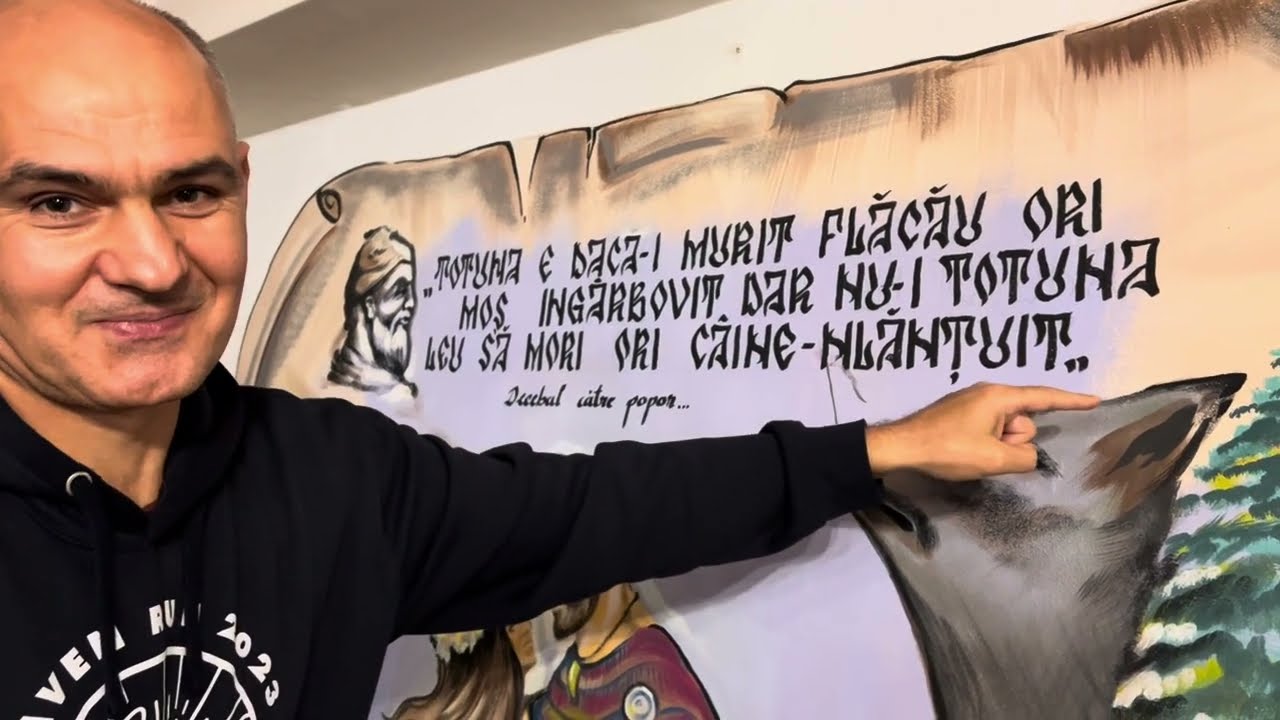 „TOTUNA E DACĂ-I MURIT FLĂCĂU ORI
MOȘ INGÂRBOVIT DAR NU-I TOTUNA
LEU SĂ MORI ORI CÂINE-NLĂNȚUIT„
Decebal către popor...
2023